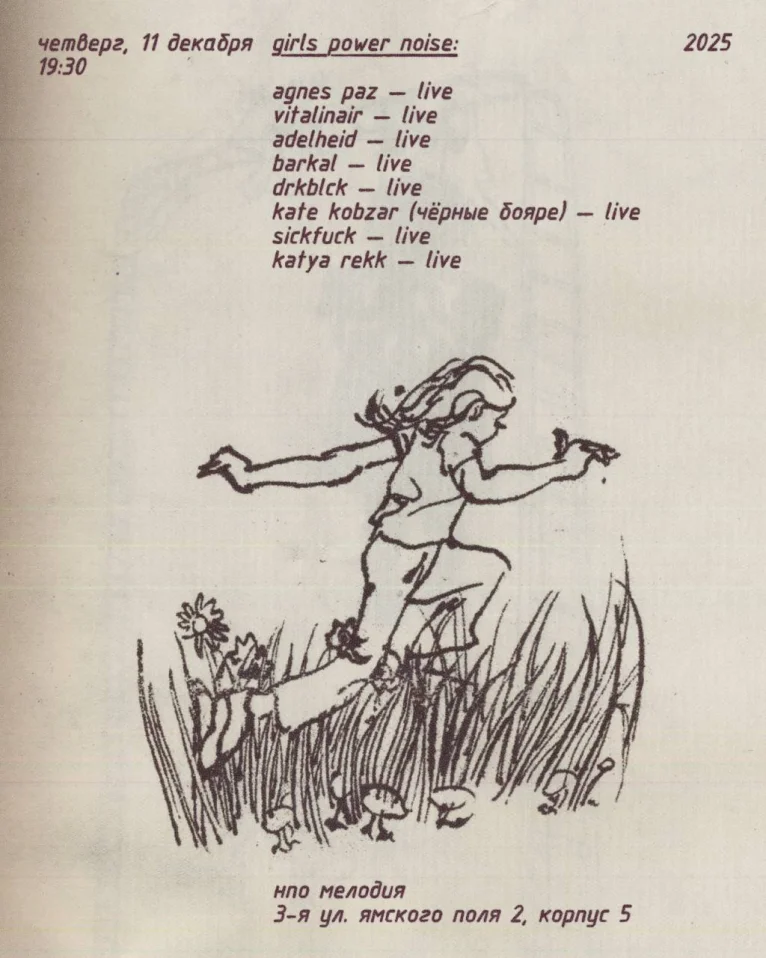 четверг, 11 декабря girls power noise: 2025
19:30
agnes paz — live
vitalinair — live
adelheid — live
barkal — live
drkblck — live
kate kobzar (чёрные бояре) — live
sickfuck — live
katya rekk — live
нпо мелодия
3-я ул. ямского поля 2, корпус 5